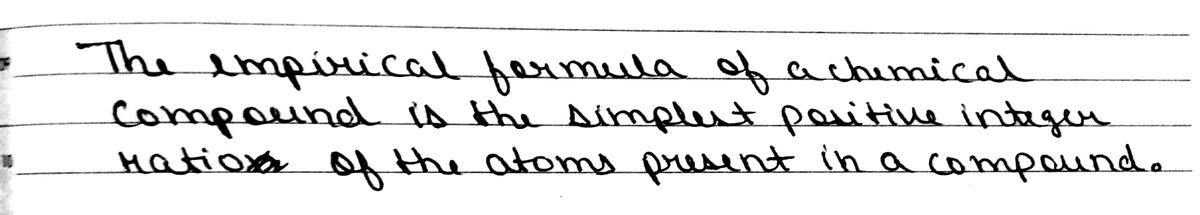 The empirical formula of a chemical
compound is the simplest positive integer
ratio of the atoms present in a compound.